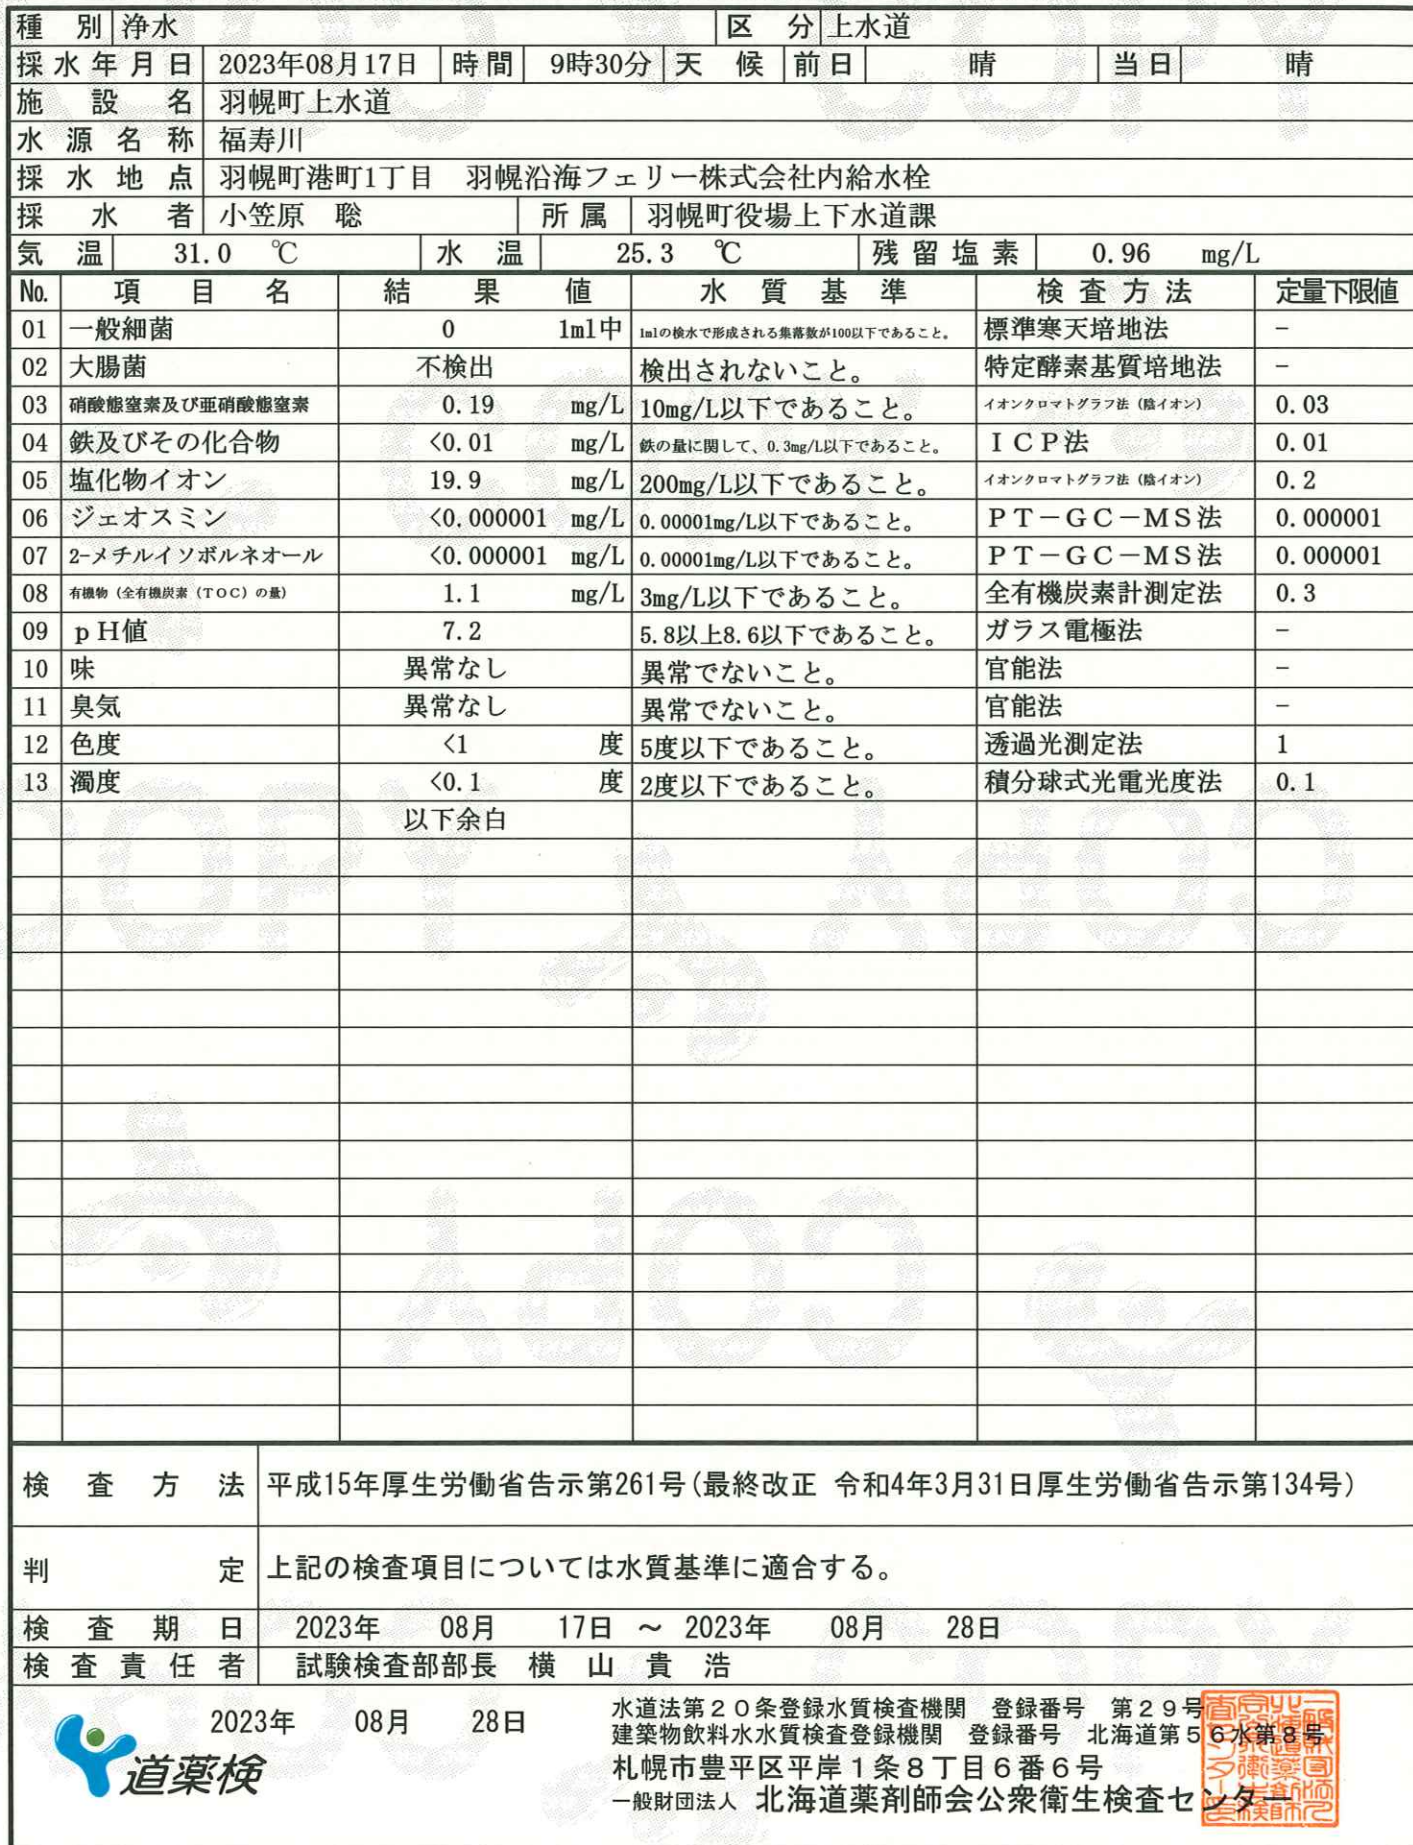 種 別 浄水 区 分 上水道
採水年月日 2023年08月17日 時間 9時30分 天 候 前日 晴 当日 晴
施 設 名 羽幌町上水道
水 源 名 称 福寿川
採 水 地 点 羽幌町港町1丁目 羽幌沿海フェリー株式会社内給水栓
採 水 者 小笠原 聡 所属 羽幌町役場上下水道課
気 温 31.0 ℃ 水 温 25.3 ℃ 残留塩素 0.96 mg/L
No. 項 目 名 結 果 値 水 質 基 準 検査方法 定量下限値
01 一般細菌 0 1ml中 1mlの検水で形成される集落数が100以下であること。 標準寒天培地法 −
02 大腸菌 不検出 検出されないこと。 特定酵素基質培地法 −
03 硝酸態窒素及び亜硝酸態窒素 0.19 mg/L 10mg/L以下であること。 イオンクロマトグラフ法（陰イオン） 0.03
04 鉄及びその化合物 <0.01 mg/L 鉄の量に関して、0.3mg/L以下であること。 ＩＣＰ法 0.01
05 塩化物イオン 19.9 mg/L 200mg/L以下であること。 イオンクロマトグラフ法（陰イオン） 0.2
06 ジェオスミン <0.000001 mg/L 0.00001mg/L以下であること。 ＰＴ−ＧＣ−ＭＳ法 0.000001
07 2-メチルイソボルネオール <0.000001 mg/L 0.00001mg/L以下であること。 ＰＴ−ＧＣ−ＭＳ法 0.000001
08 有機物（全有機炭素（ＴＯＣ）の量） 1.1 mg/L 3mg/L以下であること。 全有機炭素計測定法 0.3
09 ｐＨ値 7.2 5.8以上8.6以下であること。 ガラス電極法 −
10 味 異常なし 異常でないこと。 官能法 −
11 臭気 異常なし 異常でないこと。 官能法 −
12 色度 <1 度 5度以下であること。 透過光測定法 1
13 濁度 <0.1 度 2度以下であること。 積分球式光電光度法 0.1
以下余白
検 査 方 法 平成15年厚生労働省告示第261号(最終改正 令和4年3月31日厚生労働省告示第134号)
判 定 上記の検査項目については水質基準に適合する。
検 査 期 日 2023年 08月 17日 ～ 2023年 08月 28日
検 査 責 任 者 試験検査部部長 横 山 貴 浩
2023年 08月 28日
道薬検
水道法第２０条登録水質検査機関 登録番号 第２９号
建築物飲料水水質検査登録機関 登録番号 北海道第５６水第８号
札幌市豊平区平岸１条８丁目６番６号
一般財団法人 北海道薬剤師会公衆衛生検査センター
COPY